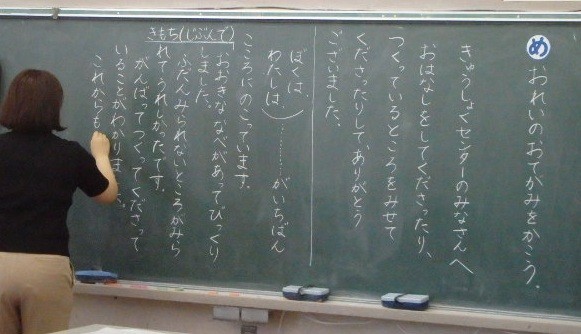 め おれいのおてがみをかこう。
きゅうしょくセンターのみなさんへ
おはなしをしてくださったり、
つくっているところをみせて
くださったりしてありがとう
ございました。
ぼくは、
わたしは、………がいちばん
こころにのこっています。
きもち(じぶんで)
おおきななべがあってびっくり
しました。
ふだんみられないところがみら
れてうれしかったです。
がんばってつくってくださって
いることがわかりました。
これからも